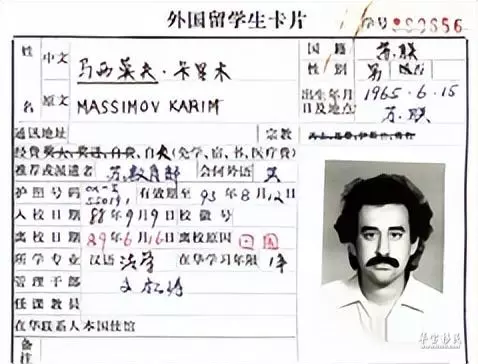 外国留学生卡片
学号 890656
姓 中文 马西莫夫·卡里木
名 原文 MASSIMOV KARIM
国籍 苏.联
性别 男
出生年月日及地点 1965.6.15 苏.联
通讯地址 宗教
经费 自费(免学、宿、书、医疗费)
推荐或派遣者 苏教育部 会何外语 英
护照号码 有效期至 93年8月12日
入校日期 88年9月9日 校徽号
离校日期 89年6月16日 离校原因 回国
所学专业 汉语 法学 在华学习年限 1年
管理干部
任课教员
在华联系人本国使馆
备注